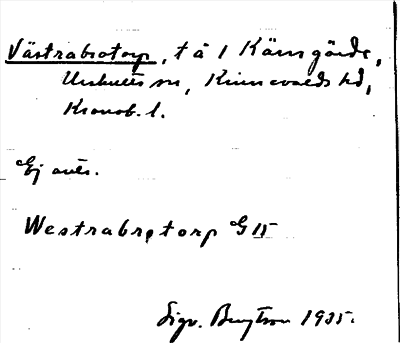 Västrabrotorp, t å 1 Kärnsgärde,
Urshults sn, Kinnevalds hd,
Kronob. l.
Ej ants.
Westrabrotorp G 15
Sigv. Bengtson 1935.